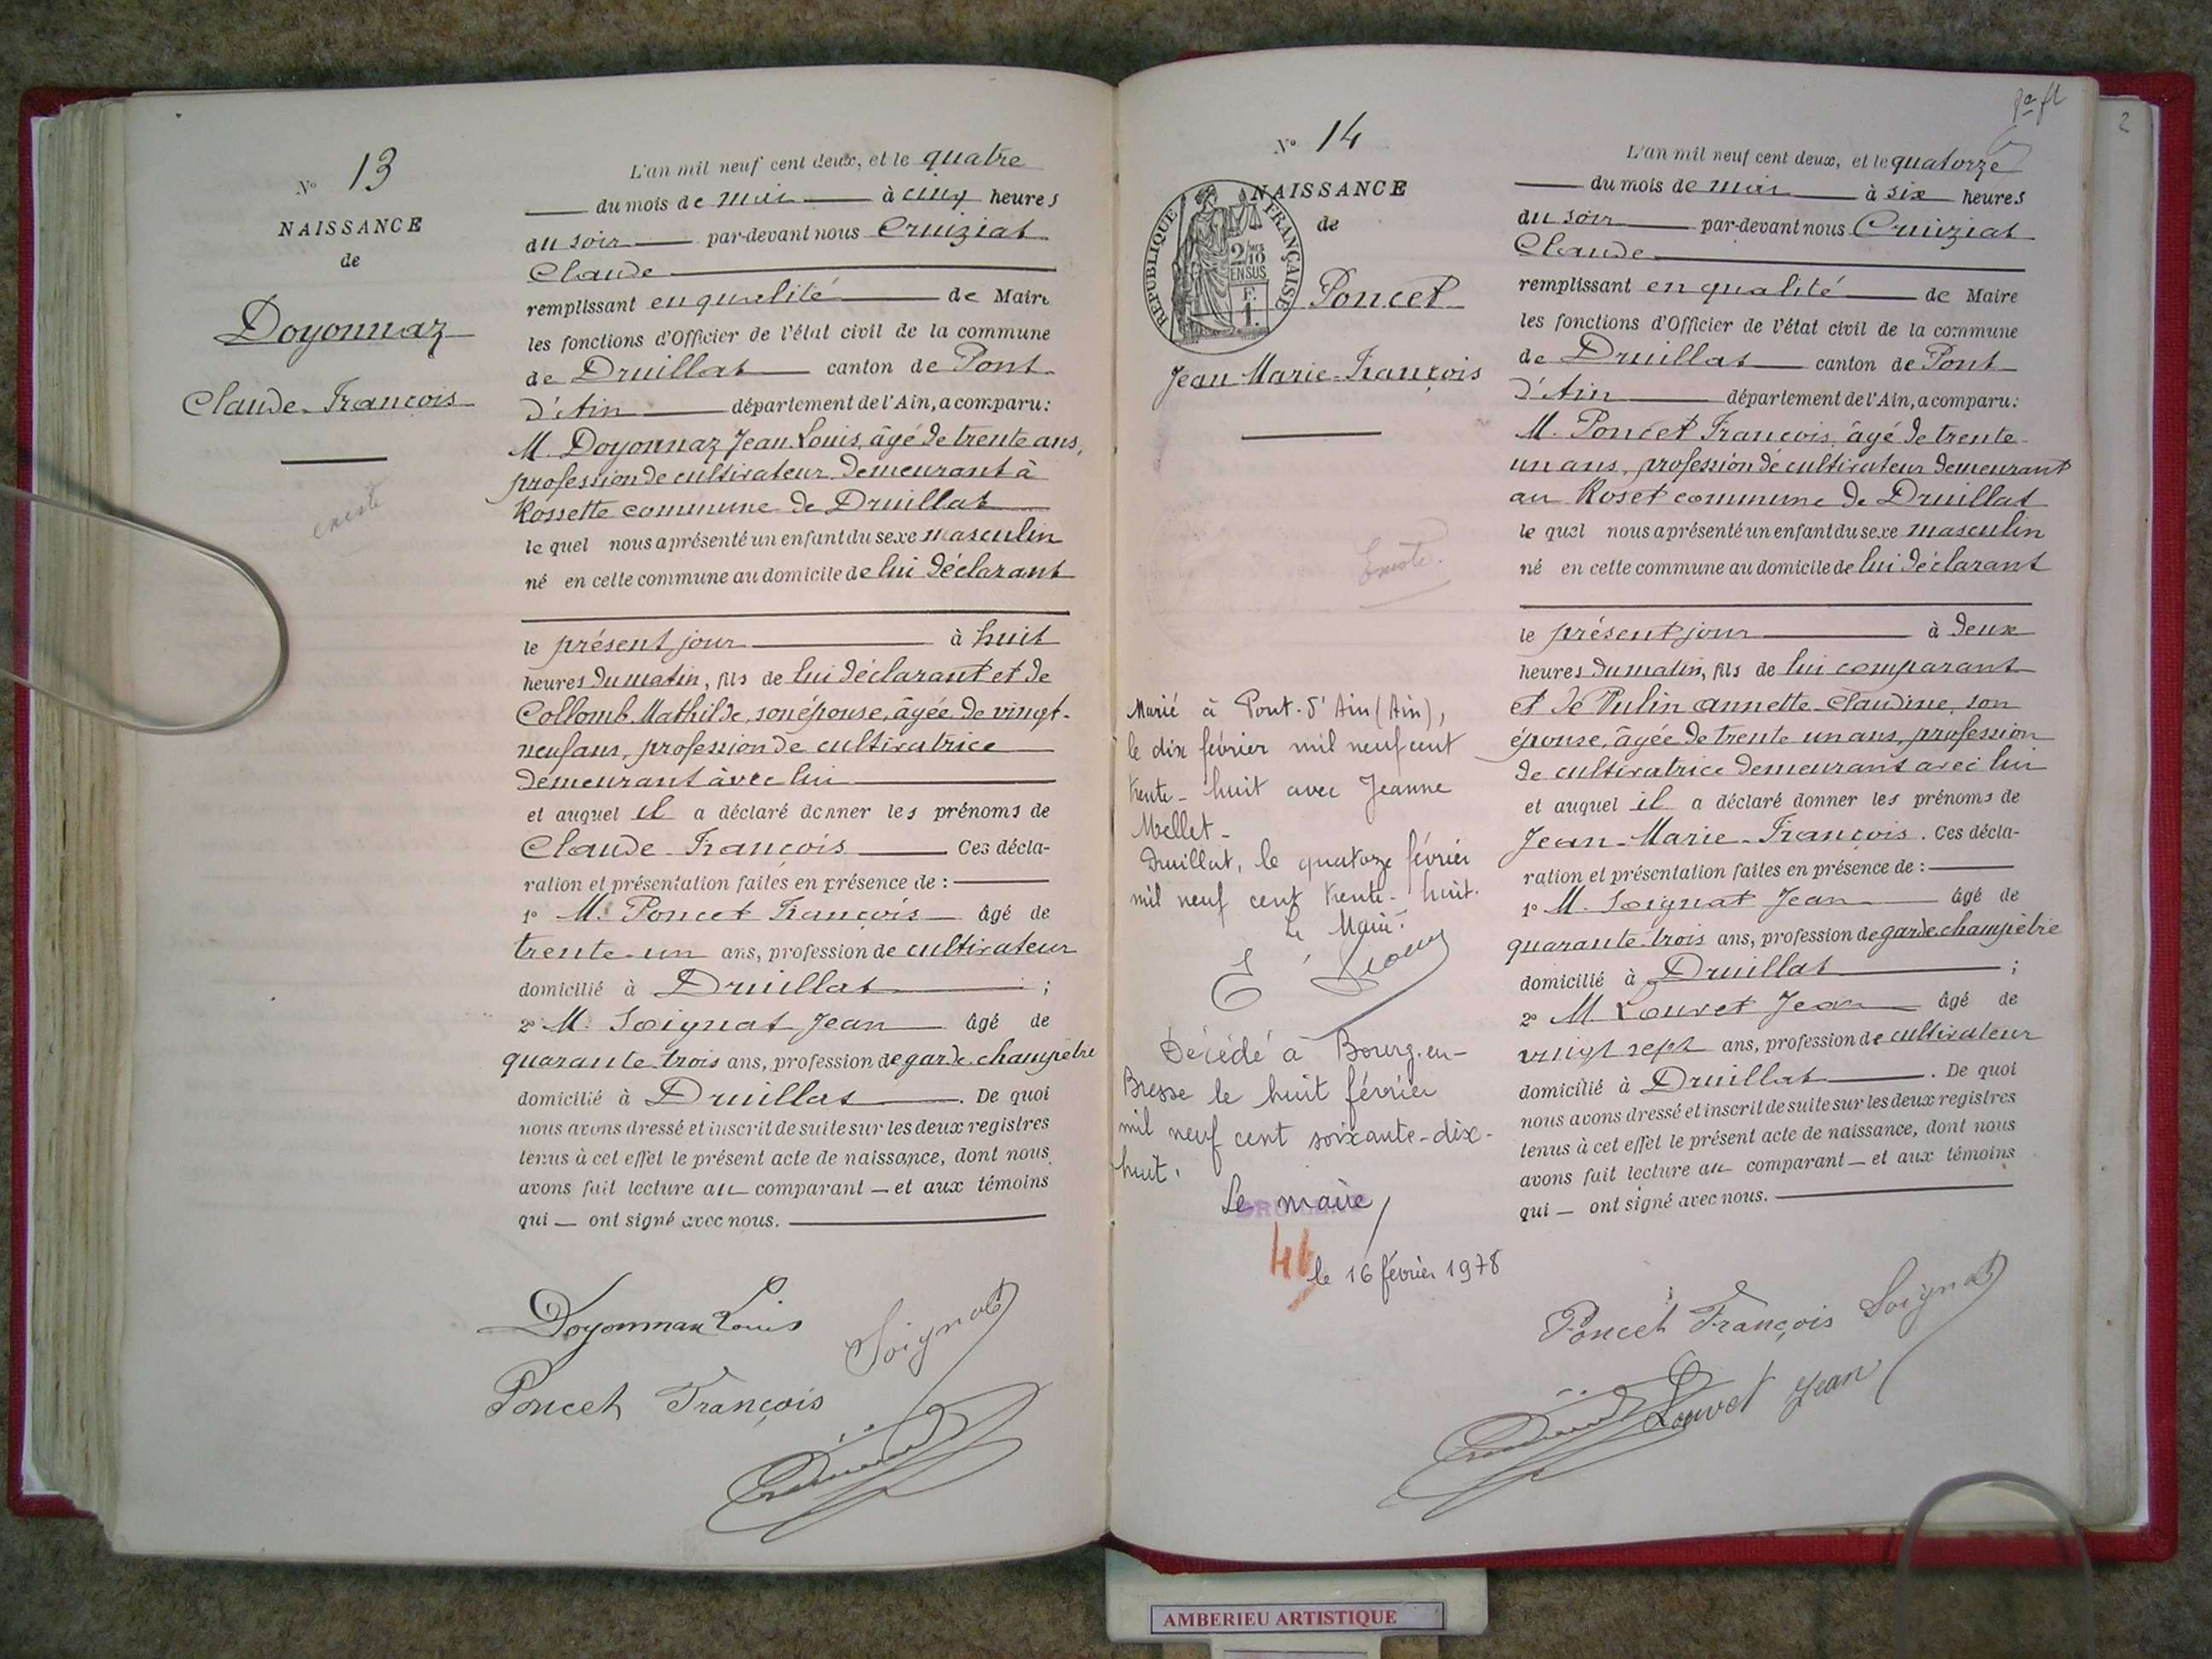 N° 13
NAISSANCE
de
Doyonnaz
Claude-François
existe
L'an mil neuf cent deux, et le quatre
du mois de mai à cinq heures
du soir par-devant nous Cruiziat
Claude
remplissant en qualité de Maire
les fonctions d'Officier de l'état civil de la commune
de Druillat canton de Pont-
d'Ain département de l'Ain, a comparu:
M. Doyonnaz Jean Louis, âgé de trente ans,
profession de cultivateur demeurant à
Rossette commune de Druillat
le quel nous a présenté un enfant du sexe masculin
né en cette commune au domicile de lui déclarant
le présent jour à huit
heures du matin, fils de lui déclarant et de
Collomb Mathilde, son épouse, âgée de vingt-
neuf ans, profession de cultivatrice
demeurant avec lui
et auquel il a déclaré donner les prénoms de
Claude-François Ces décla-
ration et présentation faites en présence de :
1° M. Poncet François âgé de
trente-un ans, profession de cultivateur
domicilié à Druillat ;
2° M. Soignat Jean âgé de
quarante-trois ans, profession de garde-champêtre
domicilié à Druillat. De quoi
nous avons dressé et inscrit de suite sur les deux registres
tenus à cet effet le présent acte de naissance, dont nous
avons fait lecture au comparant — et aux témoins
qui — ont signé avec nous.
Doyonnax Louis
Soignat
Poncet François
N° 14
NAISSANCE
de
REPUBLIQUE FRANÇAISE
2/10 EN SUS
Poncet
Jean-Marie-François
Existe.
Marié à Pont-d'Ain (Ain),
le dix février mil neuf cent
trente-huit avec Jeanne
Mellet-
Druillat, le quatorze février
mil neuf cent trente-huit.
Le Maire:
Décédé à Bourg-en-
Bresse le huit février
mil neuf cent soixante-dix-
huit.
Le maire,
le 16 février 1978
2
L'an mil neuf cent deux, et le quatorze
du mois de mai à six heures
du soir par-devant nous Cruiziat
Claude
remplissant en qualité de Maire
les fonctions d'Officier de l'état civil de la commune
de Druillat canton de Pont
d'Ain département de l'Ain, a comparu:
M. Poncet François, âgé de trente-
un ans, profession de cultivateur demeurant
au Roset commune de Druillat
le quel nous a présenté un enfant du sexe masculin
né en cette commune au domicile de lui déclarant
le présent jour à deux
heures du matin, fils de lui comparant
et de Pulin Annette-Claudine, son
épouse, âgée de trente un ans, profession
de cultivatrice demeurant avec lui
et auquel il a déclaré donner les prénoms de
Jean-Marie-François. Ces décla-
ration et présentation faites en présence de :
1° M. Soignat Jean âgé de
quarante-trois ans, profession de garde champêtre
domicilié à Druillat ;
2° M. Louvet Jean âgé de
vingt sept ans, profession de cultivateur
domicilié à Druillat. De quoi
nous avons dressé et inscrit de suite sur les deux registres
tenus à cet effet le présent acte de naissance, dont nous
avons fait lecture au comparant — et aux témoins
qui — ont signé avec nous.
Poncet François Soignat
Louvet Jean
AMBERIEU ARTISTIQUE